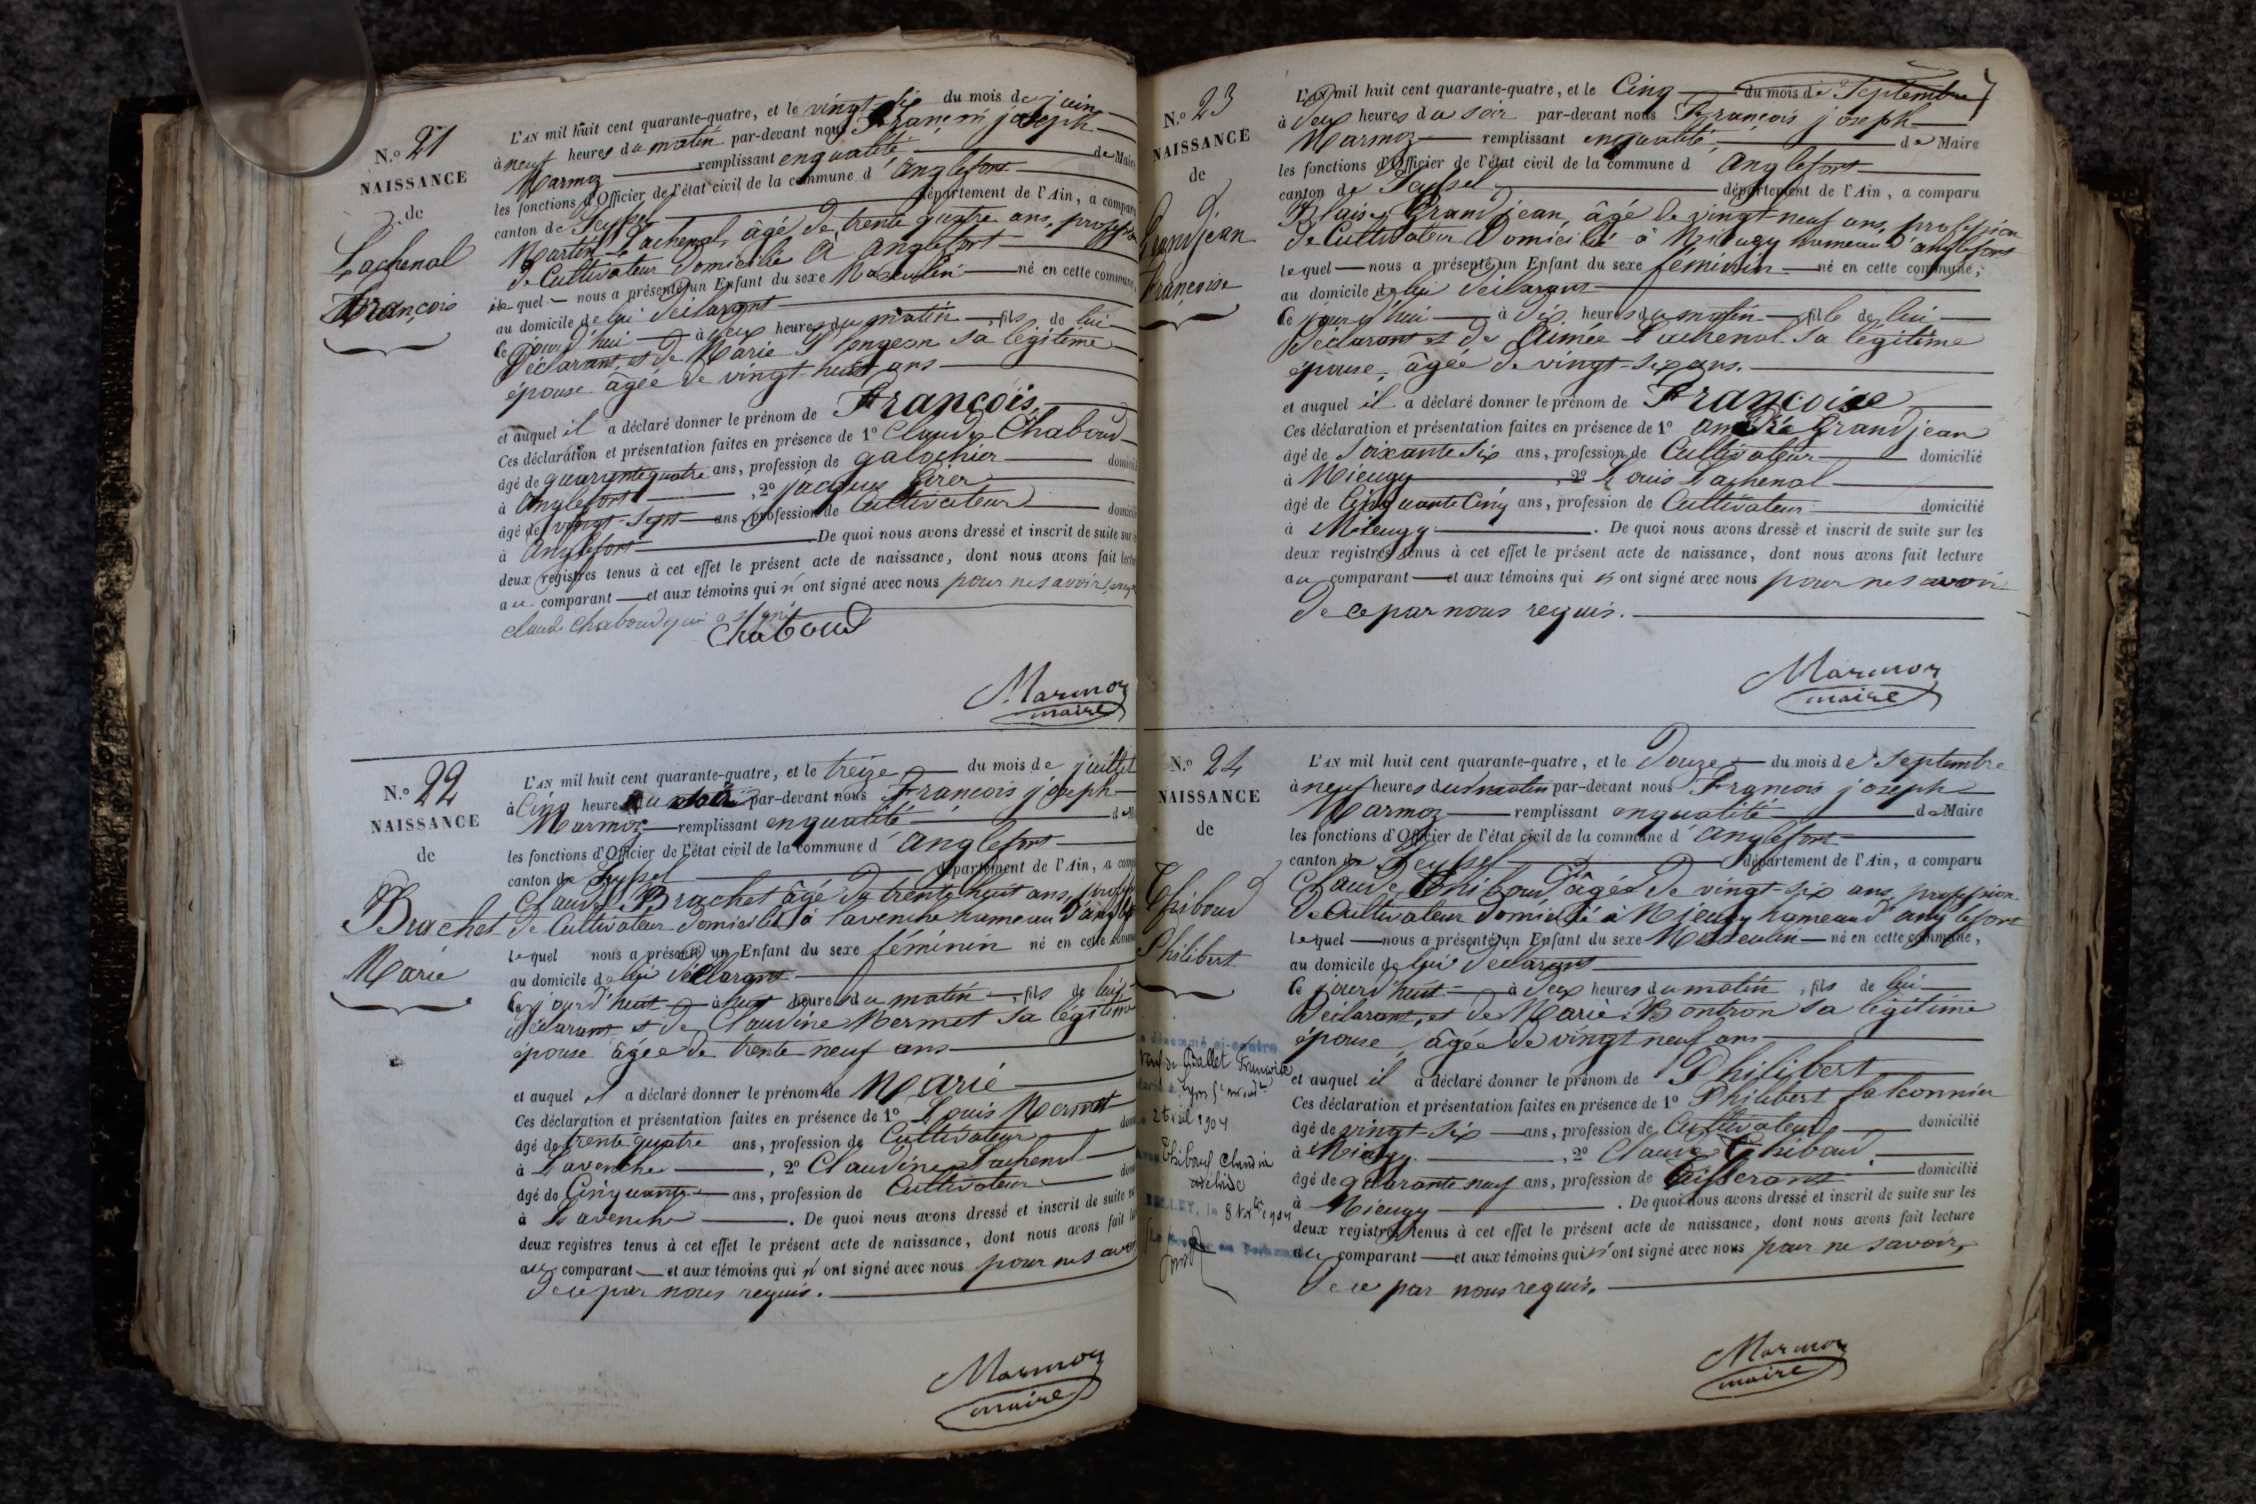 N.º 21
NAISSANCE
de
Lachenal
François
L'AN mil huit cent quarante-quatre, et le vingt six du mois de juin
à neuf heures du matin par-devant nous François joseph
Marmoz remplissant enqualité de Maire
les fonctions d'Officier de l'état civil de la commune d'anglefort
canton de Seyssel département de l'Ain, a comparu
Martin Lachenal, âgé de trente quatre ans, profession
de Cultivateur domicilié à anglefort
lequel nous a présenté un Enfant du sexe Masculin né en cette commune,
au domicile de lui déclarant
Ce jourd'hui à deux heures du matin, fils de lui
Déclarant, et de Marie sa légitime
épouse âgée de vingt-huit ans
et auquel il a déclaré donner le prénom de François
Ces déclaration et présentation faites en présence de 1º Claude Chaboud
âgé de quarante quatre ans, profession de galochier domicilié
à anglefort, 2º jacques
âgé de vingt-sept ans, profession de Cultivateur domicilié
à anglefort De quoi nous avons dressé et inscrit de suite sur
deux registres tenus à cet effet le présent acte de naissance, dont nous avons fait lecture
au comparant et aux témoins qui n'ont signé avec nous pour ne savoir
claude chaboud qui a signé
Chaboud
Marmoz
maire
N.º 22
NAISSANCE
de
Brachet
Marie
L'AN mil huit cent quarante-quatre, et le treize du mois de juillet
à Cinq heures du soir par-devant nous François joseph
Marmoz remplissant enqualité de
les fonctions d'Officier de l'état civil de la commune d'anglefort
canton de Seyssel département de l'Ain, a comp
Claude Brachet âgé de trente huit ans, prof
de Cultivateur domicilié à lavenche hameau d'anglef
lequel nous a présenté un Enfant du sexe féminin né en cette commune
au domicile de lui déclarant
Ce jourd'hui à heures du matin, fils de lui
Déclarant et de Claudine Mermet sa légitime
épouse âgée de trente neuf ans
et auquel il a déclaré donner le prénom de Marie
Ces déclaration et présentation faites en présence de 1º Louis Mermet
âgé de trente quatre ans, profession de Cultivateur dom
à Lavenche, 2º Claudine Lachenal
âgé de Cinquante ans, profession de Cultivateur dom
à Lavenche. De quoi nous avons dressé et inscrit de suite sur
deux registres tenus à cet effet le présent acte de naissance, dont nous avons fait
au comparant et aux témoins qui n'ont signé avec nous pour ne savoi
de ce par nous requis.
Marmoz
maire
N.º 23
NAISSANCE
de
Grandjean
Françoise
L'AN mil huit cent quarante-quatre, et le Cinq du mois de Septembre
à deux heures du soir par-devant nous François joseph
Marmoz remplissant enqualité de Maire
les fonctions d'Officier de l'état civil de la commune d'anglefort
canton de Seyssel département de l'Ain, a comparu
Blaise Grandjean, âgé de vingt-neuf ans, profession
de Cultivateur Domicilié à Mieugy hameau d'anglefort
lequel nous a présenté un Enfant du sexe féminin né en cette commune,
au domicile de lui déclarant
Ce jourd'hui à dix heures du matin, fille de lui
déclarant et de Aimée Lachenal sa légitime
épouse, âgée de vingt-six ans.
et auquel il a déclaré donner le prénom de Françoise
Ces déclaration et présentation faites en présence de 1º Grandjean
âgé de Soixante Six ans, profession de Cultivateur domicilié
à Mieugy, 2º Louis Lachenal
âgé de Cinquante Cinq ans, profession de Cultivateur domicilié
à Mieugy. De quoi nous avons dressé et inscrit de suite sur les
deux registres tenus à cet effet le présent acte de naissance, dont nous avons fait lecture
au comparant et aux témoins qui n'ont signé avec nous pour ne savoir
de ce par nous requis.
Marmoz
maire
N.º 24
NAISSANCE
de
Thiboud
Philibert
L'AN mil huit cent quarante-quatre, et le Douze du mois de Septembre
à neuf heures du matin par-devant nous François joseph
Marmoz remplissant enqualité de Maire
les fonctions d'Officier de l'état civil de la commune d'anglefort
canton de Seyssel département de l'Ain, a comparu
Claude Thiboud âgé de vingt-six ans, profession
de Cultivateur domicilié à Mieugy hameau d'anglefort
lequel nous a présenté un Enfant du sexe Masculin né en cette commune,
au domicile de lui déclarant
Ce jourd'hui à deux heures du matin, fils de lui
Déclarant, et de Marie Bontron sa légitime
épouse, âgée de vingt neuf ans
et auquel il a déclaré donner le prénom de Philibert
Ces déclaration et présentation faites en présence de 1º Philibert falconnier
âgé de vingt-six ans, profession de Cultivateur domicilié
à Mieugy, 2º Claude Thiboud
âgé de quarante neuf ans, profession de Tisserant domicilié
à Mieugy. De quoi nous avons dressé et inscrit de suite sur les
deux registres tenus à cet effet le présent acte de naissance, dont nous avons fait lecture
au comparant et aux témoins qui n'ont signé avec nous pour ne savoir,
de ce par nous requis.
Marmoz
maire
dénommé ci-contre
de Ballet Françoise
Lyon
1904
Thiboud Claudia
BELLEY, le 8 1904